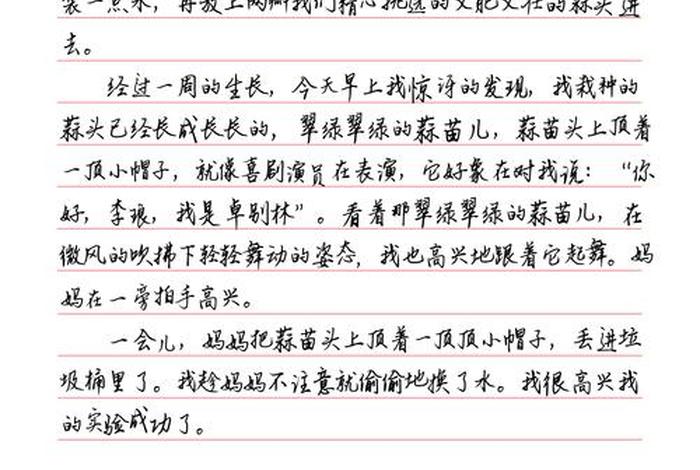 装一点水，再放上两瓣我们精心挑选的又肥又壮的蒜头进
去。
经过一周的生长，今天早上我惊讶的发现，我栽种的
蒜头已经长成长长的，翠绿翠绿的蒜苗儿，蒜苗头上顶着
一顶小帽子，就像喜剧演员在表演，它好象在对我说：“你
好，李琅，我是卓别林”。看着那翠绿翠绿的蒜苗儿，在
微风的吹拂下轻轻舞动的姿态，我也高兴地跟着它起舞。妈
妈在一旁拍手高兴。
一会儿，妈妈把蒜苗头上顶着一顶顶小帽子，丢进垃
圾桶里了。我趁妈妈不注意就偷偷地换了水。我很高兴我
的实验成功了。